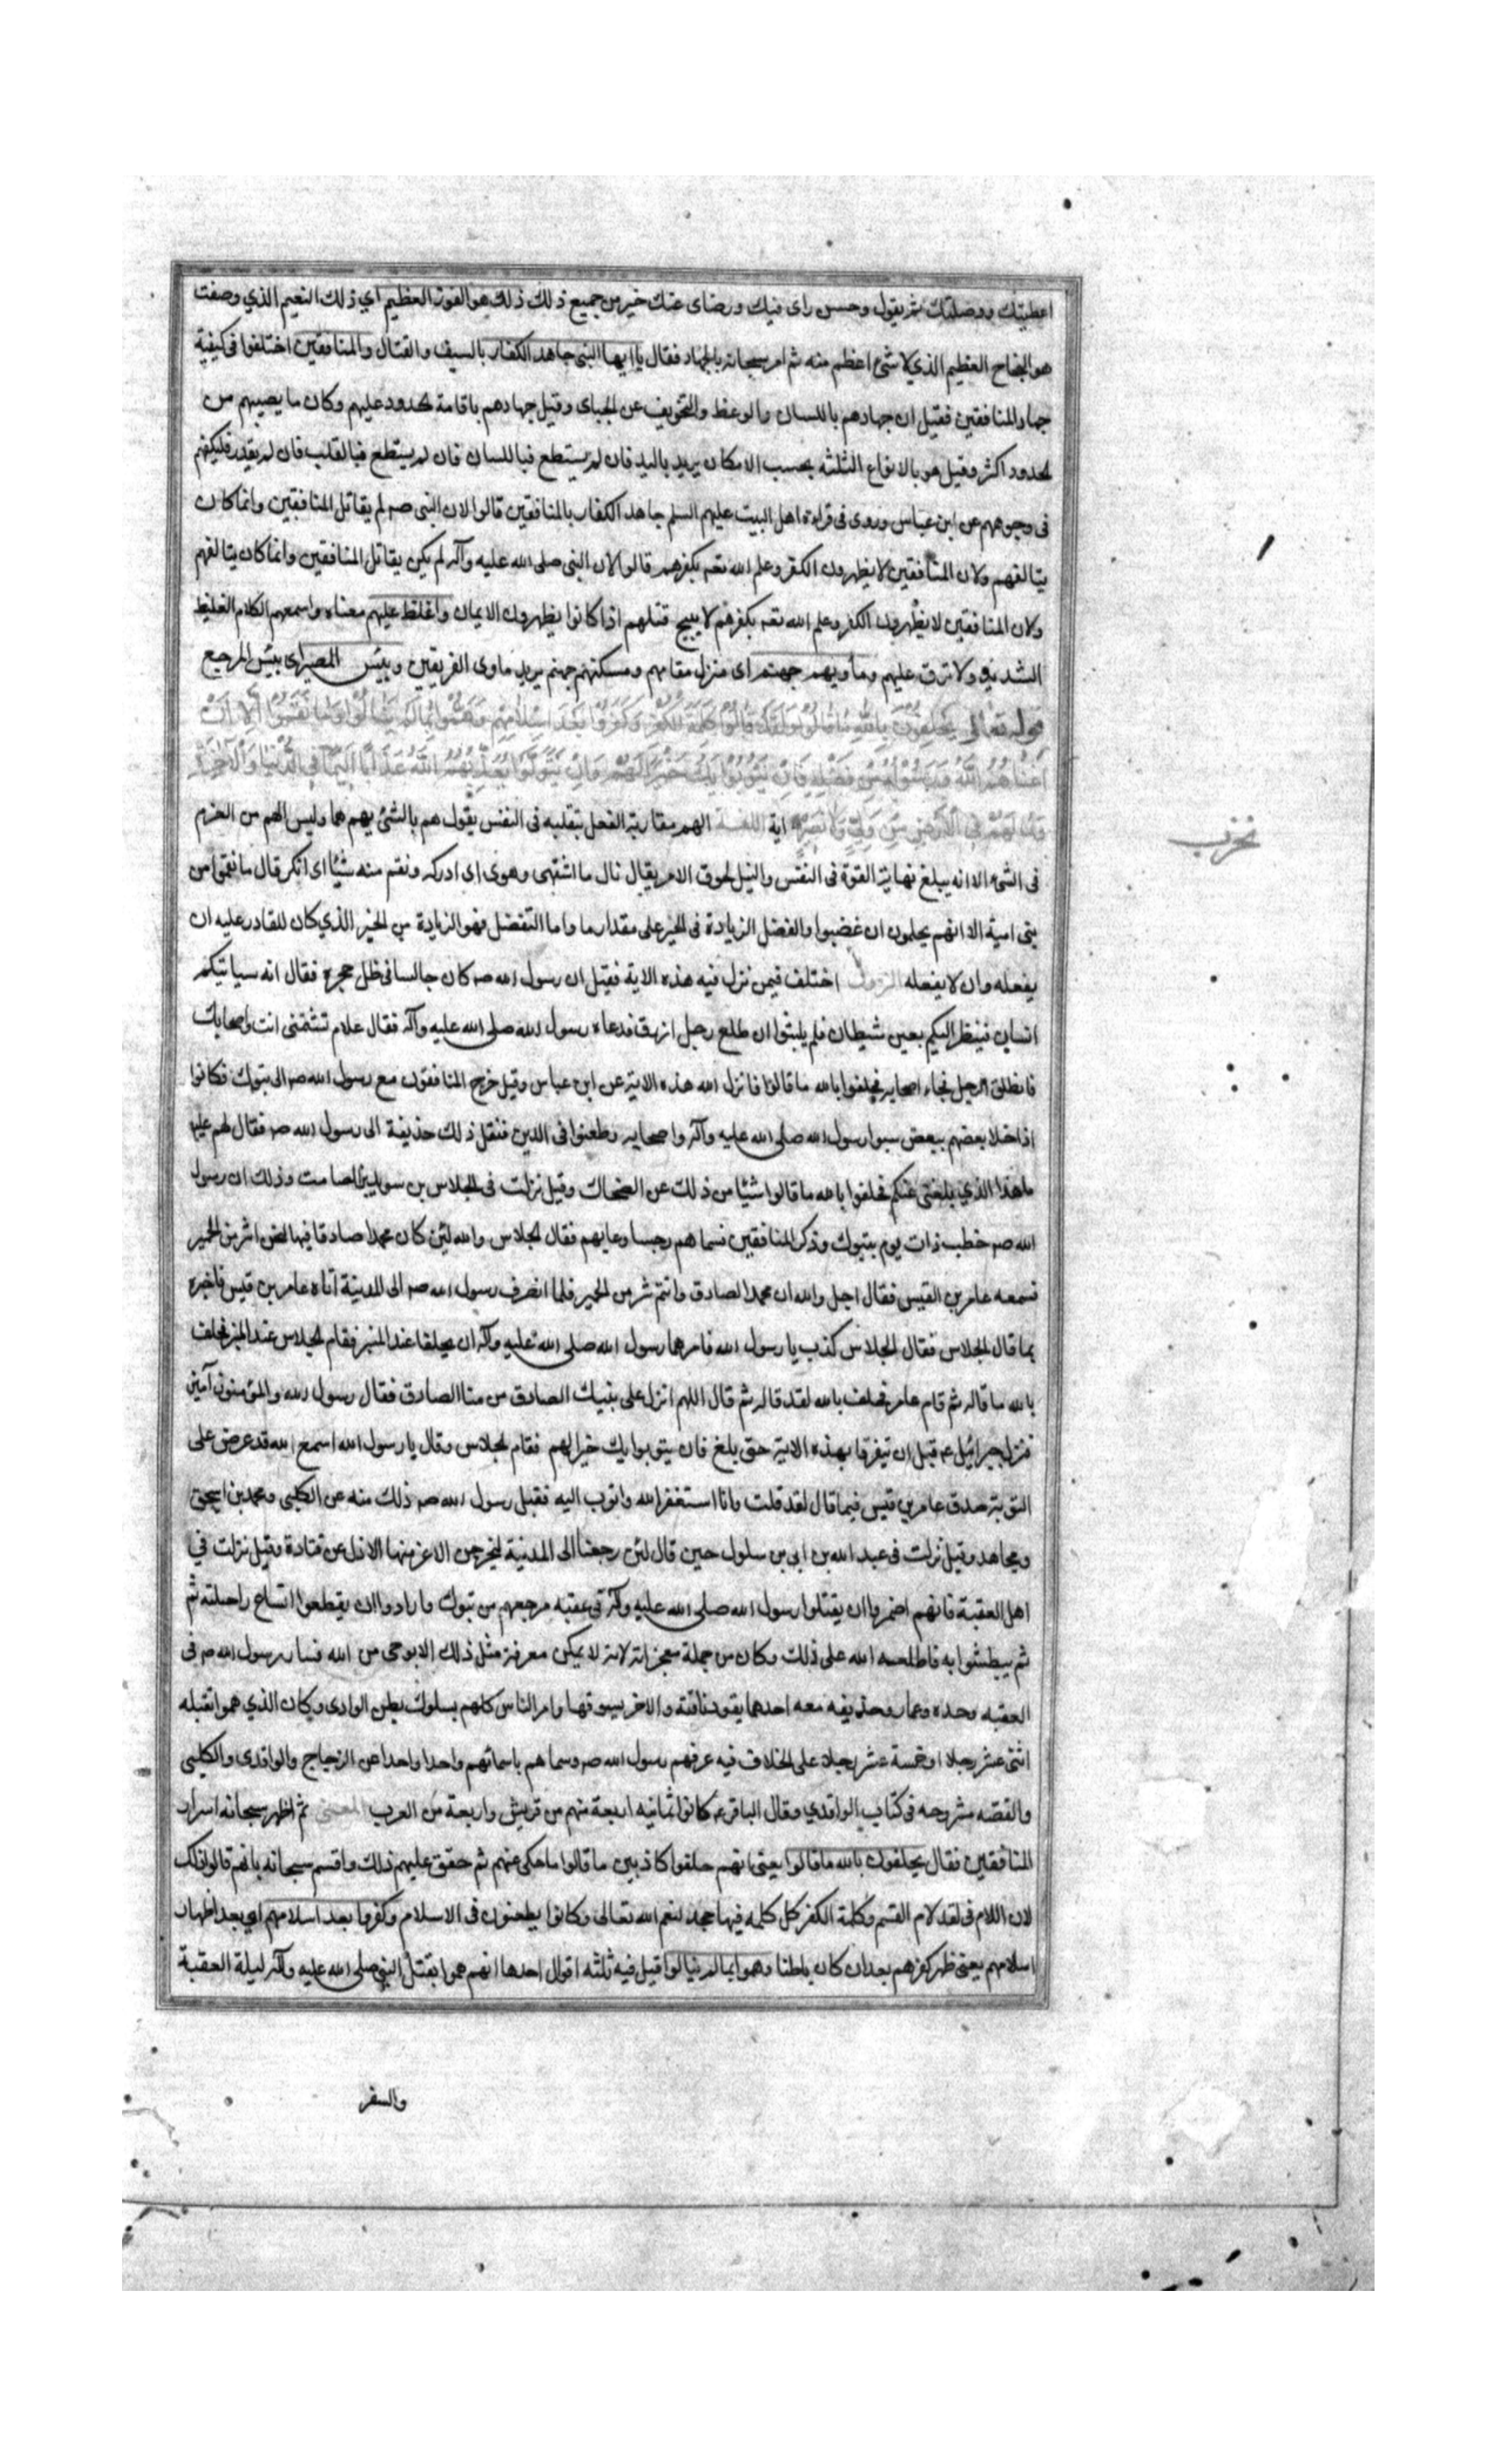 اعطيتك ووصلتك ثم يقول وحسن راى فيك ورضاى عنك خير من جميع ذلك ذلك هو الفوز العظيم اي ذلك النعيم الذي وصفت
هو النجاح العظيم الذي لا شئ اعظم منه ثم امر سبحانه بالجهاد فقال يا ايها النبى جاهد الكفار بالسيف والقتال والمنافقين اختلفوا فى كيفية
جهاد المنافقين فقيل ان جهادهم باللسان والوعظ والتخويف عن الجباى وقيل جهادهم باقامة لحدود عليهم وكان ما يصيبهم من
لحدود اكثر وقيل هو بالانواع الثلثه بحسب الامكان يريد باليد فان لم يستطع فباللسان فان لم يستطع فبالقلب فان لم يقدر فليكفهر
فى وجوههم عن ابن عباس وروى فى قراءة اهل البيت عليهم السلم جاهد الكفار بالمنافقين قالوا لان النبى صم لم يقاتل المنافقين وانما كان
يتالفهم ولان المنافقين لا يظهرون الكفر وعلم الله تعه بكفرهم قالوا لان النبى صلى الله عليه وآله لم يكن يقاتل المنافقين وانما كان يتالفهم
ولان المنافقين لا يظهرون الكفر وعلم الله تعه بكفرهم لا يبيح قتلهم اذا كانوا يظهرون الايمان واغلظ عليهم معناه واسمعهم الكلام الغليظ
الشديد ولا ترق عليهم ومأويهم جهنم اى منزل مقامهم ومسكنهم جهنم يريد ماوى الفريقين وبئس المصير اى بئس المرجع
قوله تعالى يَحْلِفُونَ بِاللَّهِ مَا قَالُوا وَلَقَدْ قَالُوا كَلِمَةَ الْكُفْرِ وَكَفَرُوا بَعْدَ اِسْلَامِهِمْ وَهَمُّوا بِمَا لَمْ يَنَالُوا وَمَا نَقَمُوا اِلَّا اَنْ
اَغْنَاهُمُ اللَّهُ وَرَسُولُهُ مِنْ فَضْلِهِ فَاِنْ يَتُوبُوا يَكُ خَيْرًا لَهُمْ وَاِنْ يَتَوَلَّوْا يُعَذِّبْهُمُ اللَّهُ عَذَابًا اَلِيمًا فِي الدُّنْيَا وَالْآخِرَةِ
وَمَا لَهُمْ فِي الْاَرْضِ مِنْ وَلِيٍّ وَلَا نَصِيرٍ اية اللغة الهم مقاربة الفعل بتقليبه فى النفس يقول هم بالشئ يهم هما وليس الهم من العزم
فى الشئ الا انه يبلغ نهاية القوة فى النفس والنيل لحوق الامر يقال نال ما اشتهى وهوى اى ادركه ونقم منه شيئا اى انكر قال ما نقموا من
بنى امية الا انهم يحلمون ان غضبوا والفضل الزيادة فى الخير على مقدار ما واما التفضل فهو الزيادة من الخير الذي كان للقادر عليه ان
يفعله وان لا يفعله النزول اختلف فيمن نزل فيه هذه الاية فقيل ان رسول الله صم كان جالسا فى ظل حجرة فقال انه سياتيكم
انسان فينظر اليكم بعين شيطان فلم يلبثوا ان طلع رجل ازرق فدعاه رسول الله صلى الله عليه وآله فقال علام تشتمنى انت واصحابك
فانطلق الرجل فجاء اصحابه فحلفوا بالله ما قالوا فانزل الله هذه الاية عن ابن عباس وقيل خرج المنافقون مع رسول الله صم الى تبوك فكانوا
اذا خلا بعضهم ببعض سبوا رسول الله صلى الله عليه وآله واصحابه وطعنوا فى الدين فنقل ذلك حذيفة الى رسول الله صم فقال لهم عليه
ما هذا الذي بلغنى عنكم فحلفوا بالله ما قالوا شيئا من ذلك عن الضحاك وقيل نزلت فى الجلاس بن سويد بن الصامت وذلك ان رسول
الله صم خطب ذات يوم بتبوك وذكر المنافقين فسماهم رجسا وعابهم فقال لجلاس والله لئن كان محمدا صادقا فيها لنحن اشر من الحمير
فسمعه عامر بن القيس فقال اجل والله ان محمدا لصادق وانتم شر من الحمير فلما انصرف رسول الله صم الى المدينة اتاه عامر بن قيس فاخبره
بما قال لجلاس فقال لجلاس كذب يا رسول الله فامرهما رسول الله صلى الله عليه وآله ان يحلفا عند المنبر فقام لجلاس عند المنبر فحلف
بالله ما قاله ثم قام عامر فحلف بالله لقد قاله ثم قال اللهم انزل على نبيك الصادق من منا الصادق فقال رسول الله والمؤمنون آمين
فنزل جبرائيل عم قبل ان تيفرقا بهذه الاية حتى بلغ فان يتوبوا يك خيرا لهم فقام لجلاس وقال يا رسول الله اسمع الله قد عرض على
التوبة صدق عامر بن قيس فيما قال لقد قلت وانا استغفر الله واتوب اليه فقبل رسول الله صم ذلك منه عن الكلبى ومحمد بن اسحق
ومجاهد وقيل نزلت فى عبد الله بن ابى بن سلول حين قال لئن رجعنا الى المدينة ليخرجن الاعز منها الاذل عن قتادة وقيل نزلت في
اهل العقبة فانهم اضمروا ان يقتلوا رسول الله صلى الله عليه وآله فى عقبه مرجعهم من تبوك وارادوا ان يقطعوا انساع راحلته ثم
ثم يبطشوا به فاطلعه الله على ذلك وكان من جملة معجزاته لانه لا يمكن معرفة مثل ذلك الا بوحى من الله فسار رسول الله صم فى
العقبه وحده وعمار وحذيفه معه احدهما يقود ناقته والاخر يسوقها وامر الناس كلهم بسلوك بطن الوادى وكان الذي هموا بقتله
اثنى عشر رجلا او خمسة عشر رجلا على الخلاف فيه عرفهم رسول الله صم وسماهم باسمائهم واحدا واحدا عن الزجاج والواقدى والكلبى
والقصه مشروحه فى كتاب الواقدي وقال الباقر عم كانوا ثمانيه اربعة منهم من قريش واربعة من العرب المعنى ثم اظهر سبحانه اسرار
المنافقين فقال يحلفون بالله ما قالوا يعنى انهم حلفوا كاذبين ما قالوا ما حكى عنهم ثم حقق عليهم ذلك واقسم سبحانه بانهم قالوا ذلك
لان اللام فى لقد لام القسم وكلمة الكفر كل كلمه فيها جحد لنعم الله تعالى وكانوا يطعنون فى الاسلام وكفروا بعد اسلامهم اي بعد اظهار
اسلامهم يعنى ظهر كفرهم بعد ان كان باطنا وهموا بما لم ينالوا قيل فيه ثلثه اقوال احدها انهم هموا بقتل النبى صلى الله عليه وآله ليلة العقبة
والسفر